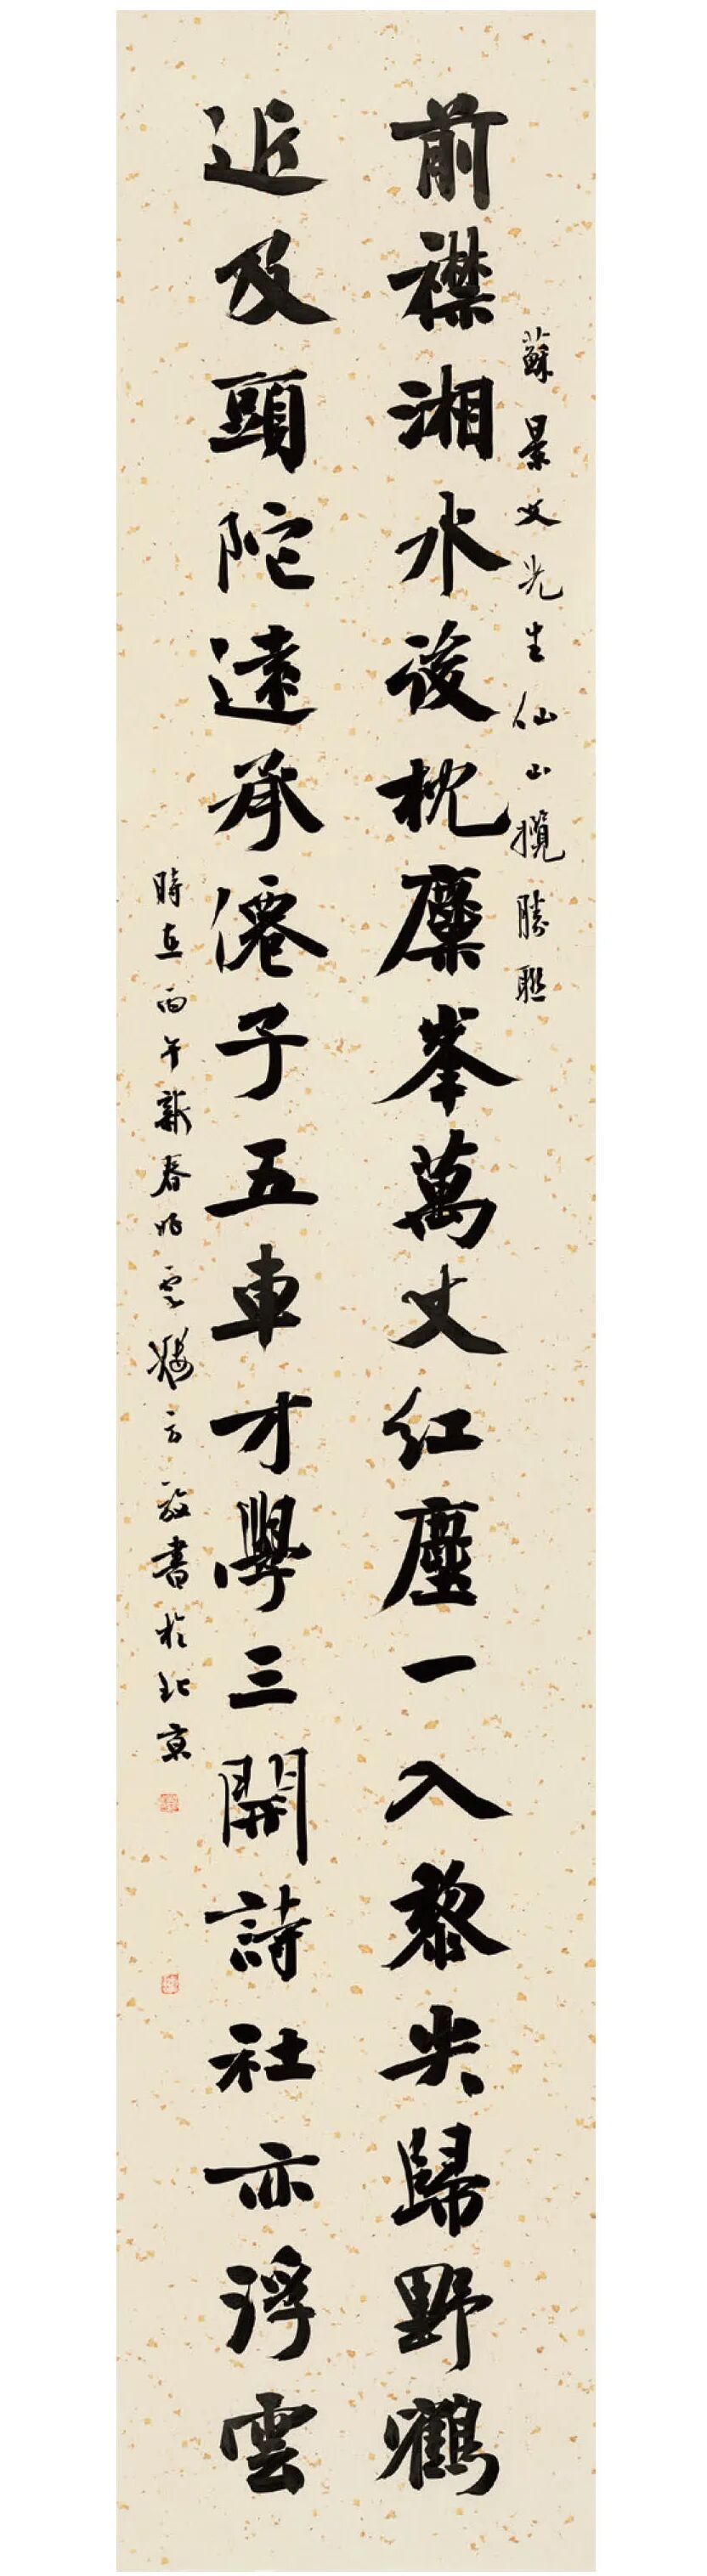 蘇景文先生仙山攬勝聯
前襟湘水後枕麋峯萬丈紅塵一入黎尖歸野鶴
近及頭陀遠承僊子五車才學三開詩社亦浮雲
時在丙午新春雲樓方放書於北京